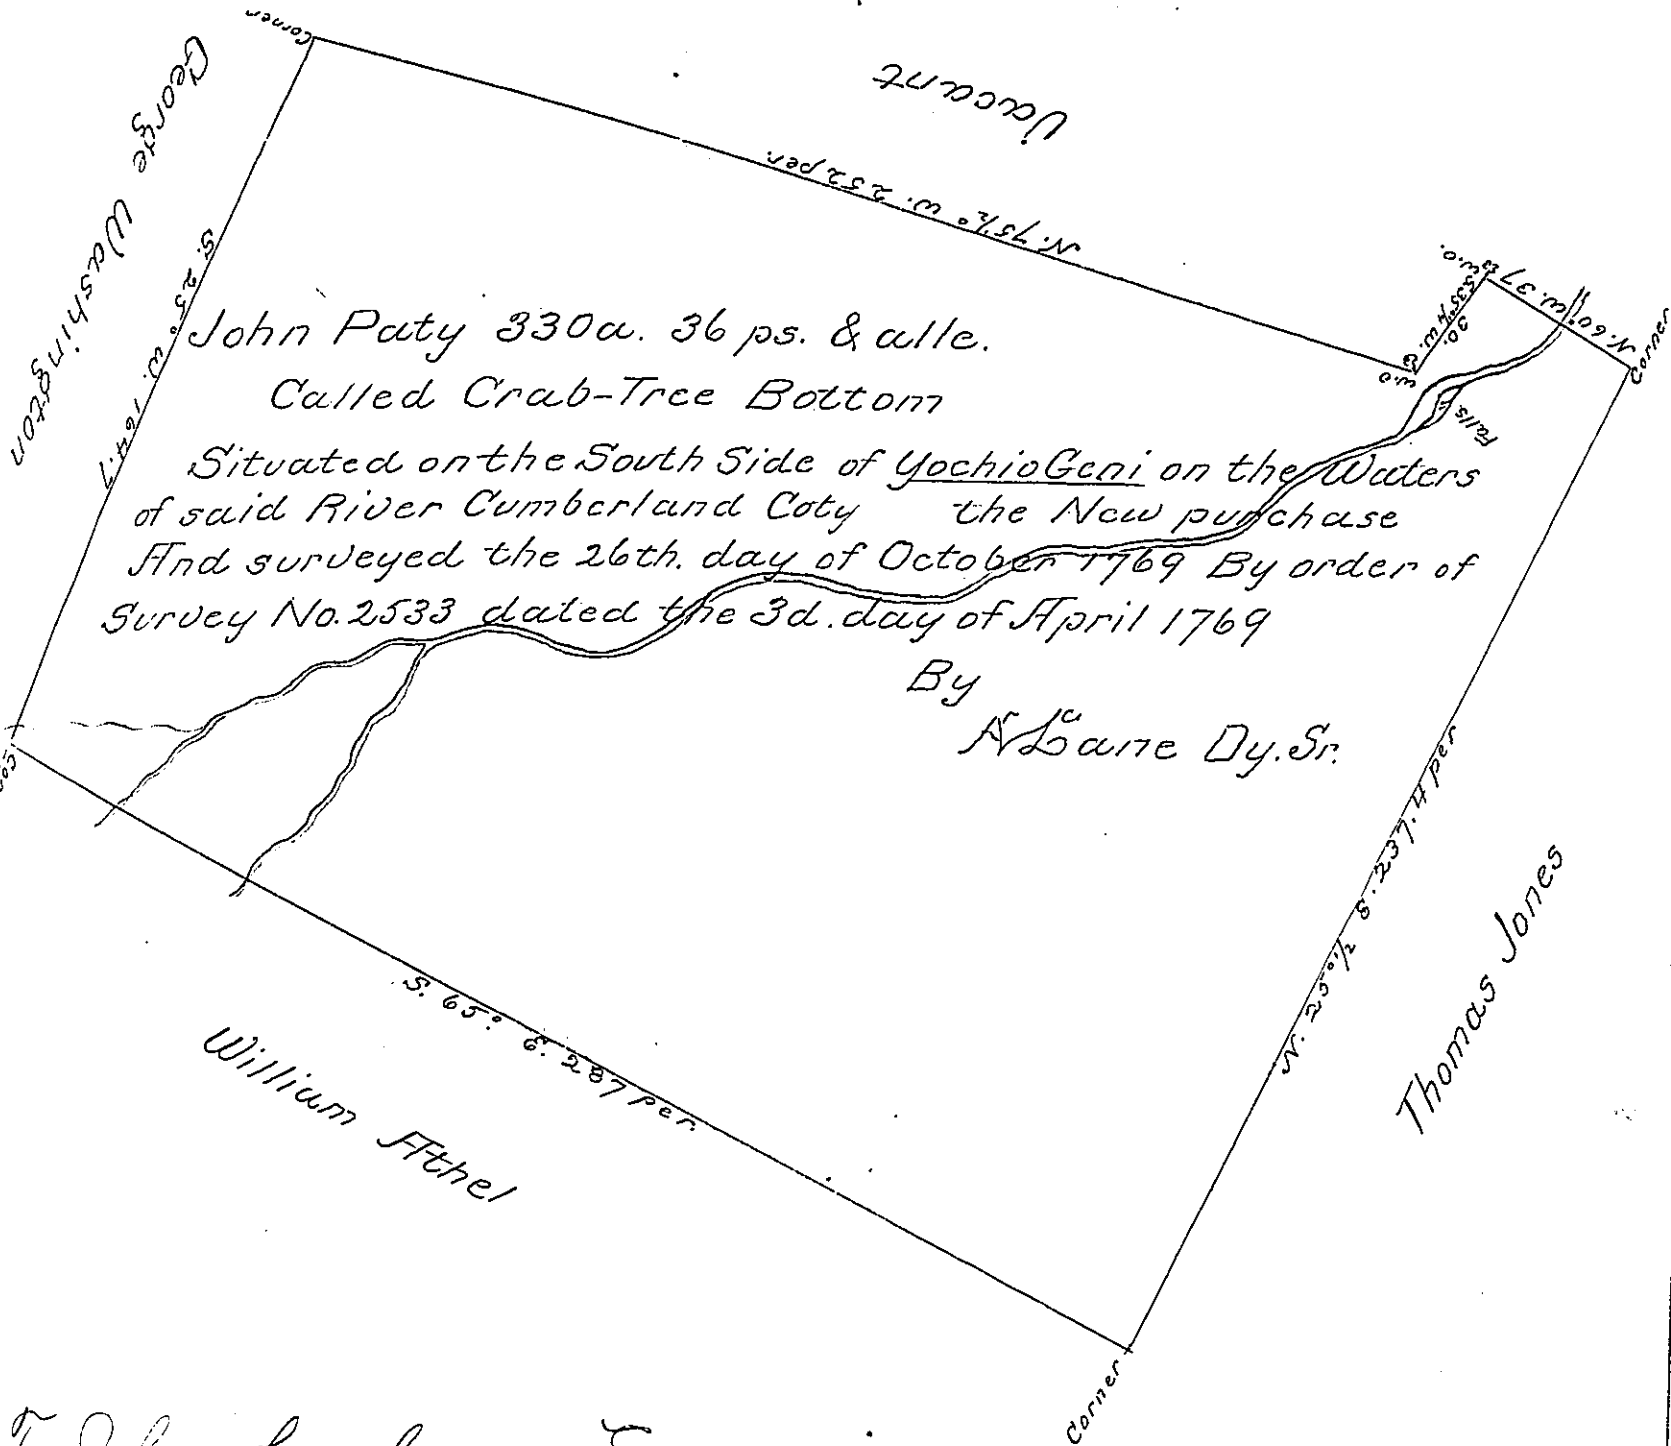 Corner
Vacant
George Washington
N. 75½° W. 252 per.
S. 25° W. 164.7
W.O.
N. 60° W. 37
S35°¼ W.
30.
W.O
Corner
Falls
John Paty 330a. 36 ps. & alle.
Called Crab-Tree Bottom
Situated on the South Side of YochioGeni on the Waters
of said River Cumberland Coty the New purchase
And surveyed the 26th. day of October 1769 By order of
Survey No. 2533 dated the 3d. day of April 1769
By
Lane Dy. Sr.
N. 25°½ E. 237.4 per
Thomas Jones
S. 65° E. 287 per.
William Athel
Corner